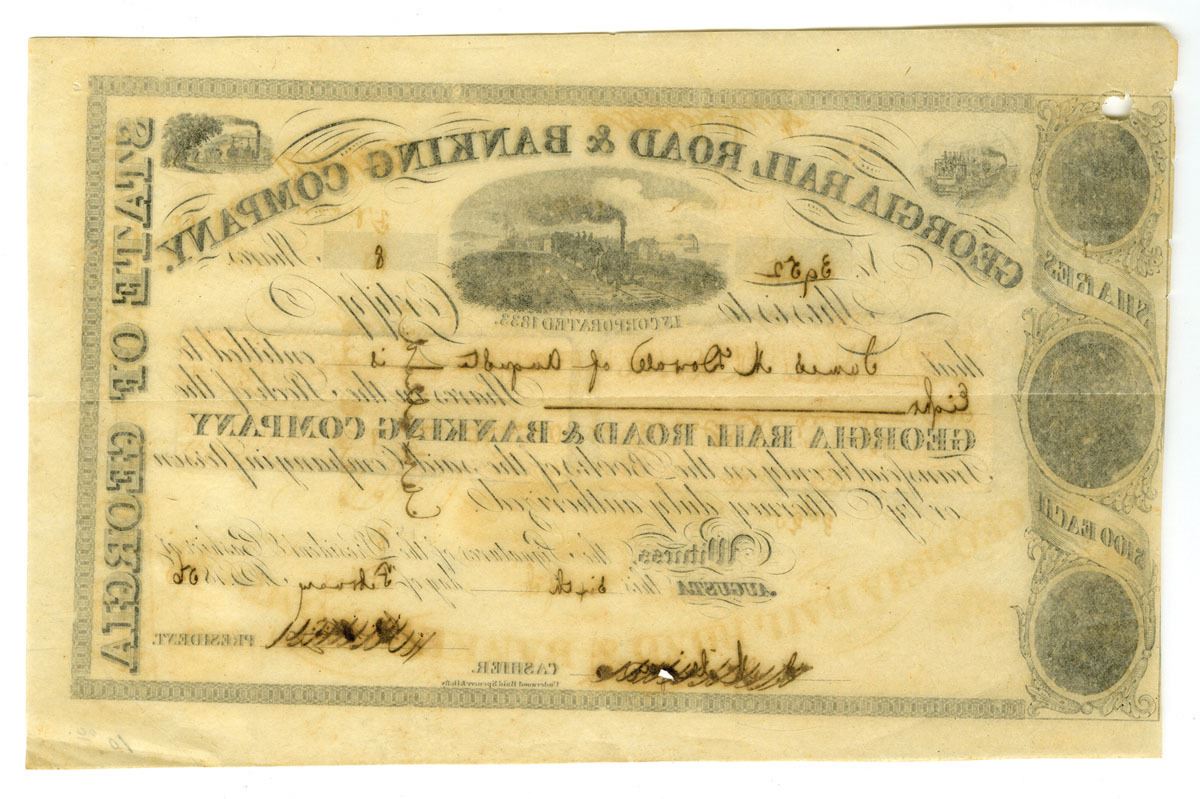 GEORGIA RAIL ROAD & BANKING COMPANY.
No. 3952
8 Shares
This is to Certify
INCORPORATED 1833.
that James McDonald of Augusta is entitled to
Eight Shares in the Stock of the
GEORGIA RAIL ROAD & BANKING COMPANY
Transferable only on the Books of the said Company in person
or by Attorney duly authorized.
Witness the Signatures of the President & Cashier at
AUGUSTA this sixth day of February A.D. 1856
PRESIDENT.
CASHIER.
STATE OF GEORGIA
SHARES
$100 EACH